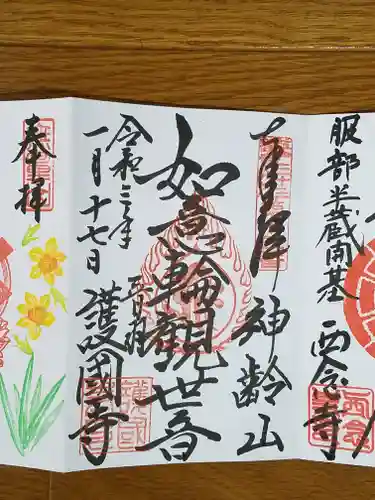 服部半蔵開基
西念寺
西念
奉拝
神齢山
如意輪観世音
令和三年
一月十七日
護国寺
奉拝